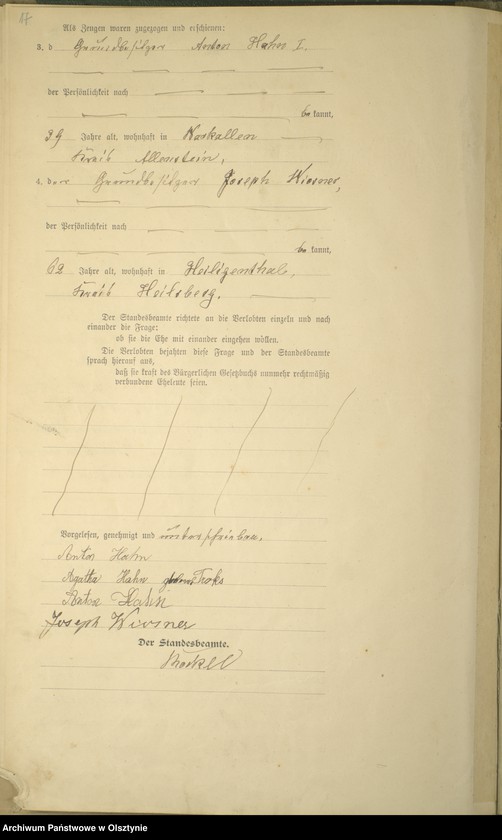 17.
Als Zeugen waren zugezogen und erschienen:
3. d Grundbesitzer Anton Hahn I.
der Persönlichkeit nach
be kannt,
39 Jahre alt, wohnhaft in
Kreis Allenstein,
4. der Grundbesitzer Joseph Wiesner,
der Persönlichkeit nach
be kannt,
62 Jahre alt, wohnhaft in Heiligenthal,
Kreis Heilsberg.
Der Standesbeamte richtete an die Verlobten einzeln und nach
einander die Frage:
ob sie die Ehe mit einander eingehen wollen.
Die Verlobten bejahten diese Frage und der Standesbeamte
sprach hierauf aus,
daß sie kraft des Bürgerlichen Gesetzbuchs nunmehr rechtmäßig
verbundene Eheleute seien.
Vorgelesen, genehmigt und unterschrieben.
Anton Hahn
Agatha Hahn geborene
Anton Hahn
Joseph Wiesner
Der Standesbeamte.
Archiwum Państwowe w Olsztynie